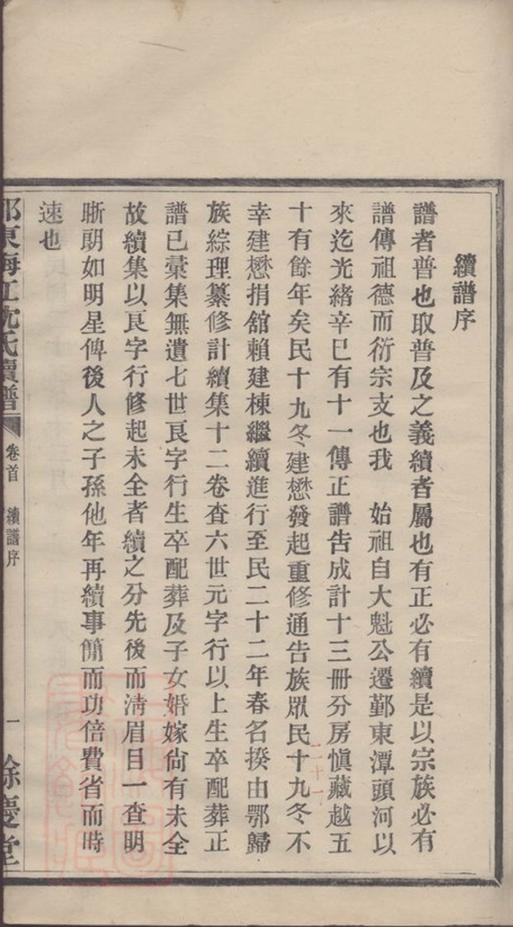 續譜序
譜者普也取普及之義續者屬也有正必有續是以宗族必有
譜傳祖德而衍宗支也我　始祖自大魁公遷鄞東潭頭河以
來迄光緒辛巳有十一傳正譜告成計十三冊分房愼藏越五
十有餘年矣民十九冬建懋發起重修通告族眾民十九冬不
幸建懋捐舘賴建棟繼續進行至民二十二年春名揆由鄂歸
族綜理纂修計續集十二卷查六世元字行以上生卒配葬正
譜已彙集無遺七世艮字行生卒配葬及子女婚嫁尙有未全
故續集以艮字行修起未全者續之分先後而淸眉目一查明
晰朗如明星俾後人之子孫他年再續事簡而功倍費省而時
速也
沈氏續譜
卷首　續譜序
一
餘慶堂